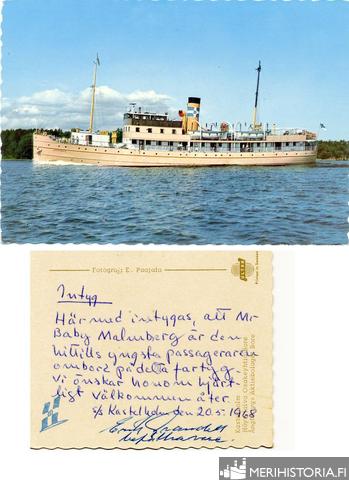 Fotografi E. Paajala
Intyg
Härmed intygas, att Mr
Baby Malmberg är den
hittills yngsta passageraren
ombord på detta fartyg.
Vi önskar honom hjärt-
ligt välkommen åter.
s/s Kastelholm den 20.5.1968
Printed in Sweden
MERIHISTORIA.FI